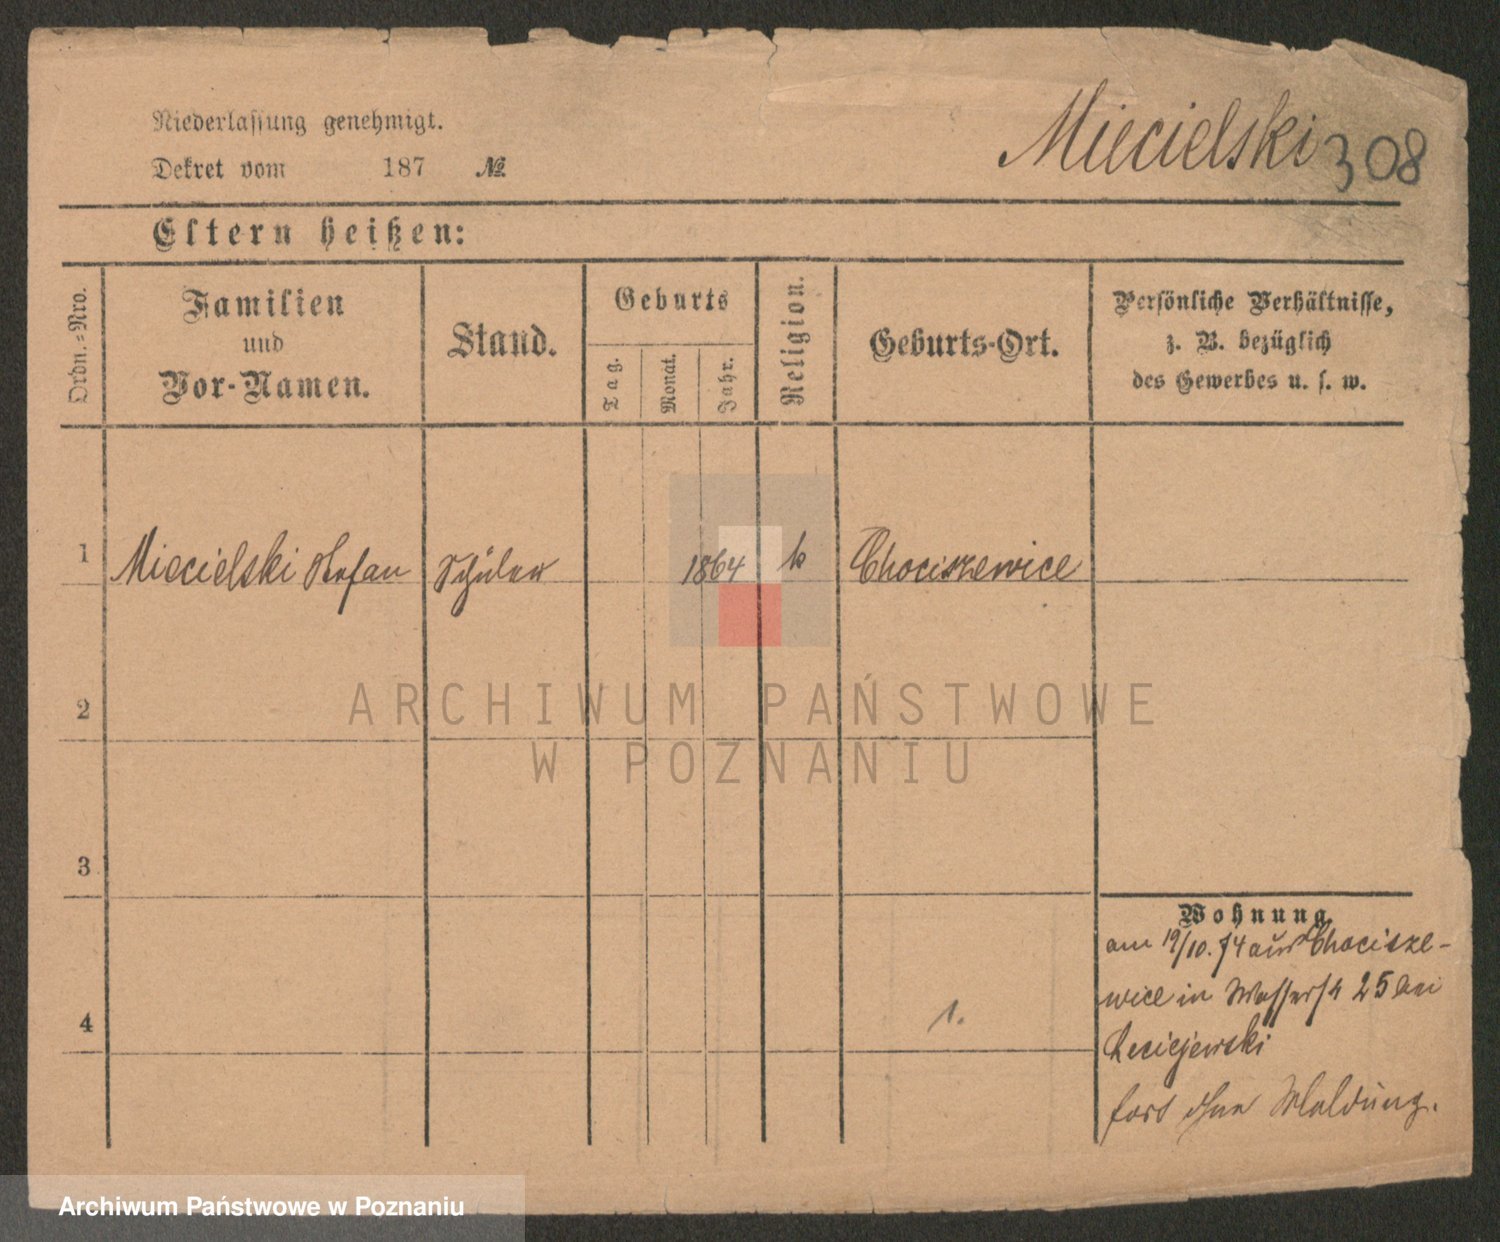 Niederlassung genehmigt.
Dekret vom 187 №
Miecielski 308
Eltern heißen:
Ordn.-Nro.
Familien
und
Vor-Namen.
Stand.
Geburts
Tag.
Monat.
Jahr.
Religion.
Geburts-Ort.
Persönliche Verhältnisse,
z. B. bezüglich
des Gewerbes u. s. w.
1 Miecielski Stefan Schüler 1864 k Chociszewice
2
3
4
1.
Wohnung.
am 19/10. 74 aus Chocisze-
wice in Wasserstr 25 bei
Leciejewski
fort ohne Meldung.
ARCHIWUM PAŃSTWOWE
W POZNANIU
Archiwum Państwowe w Poznaniu